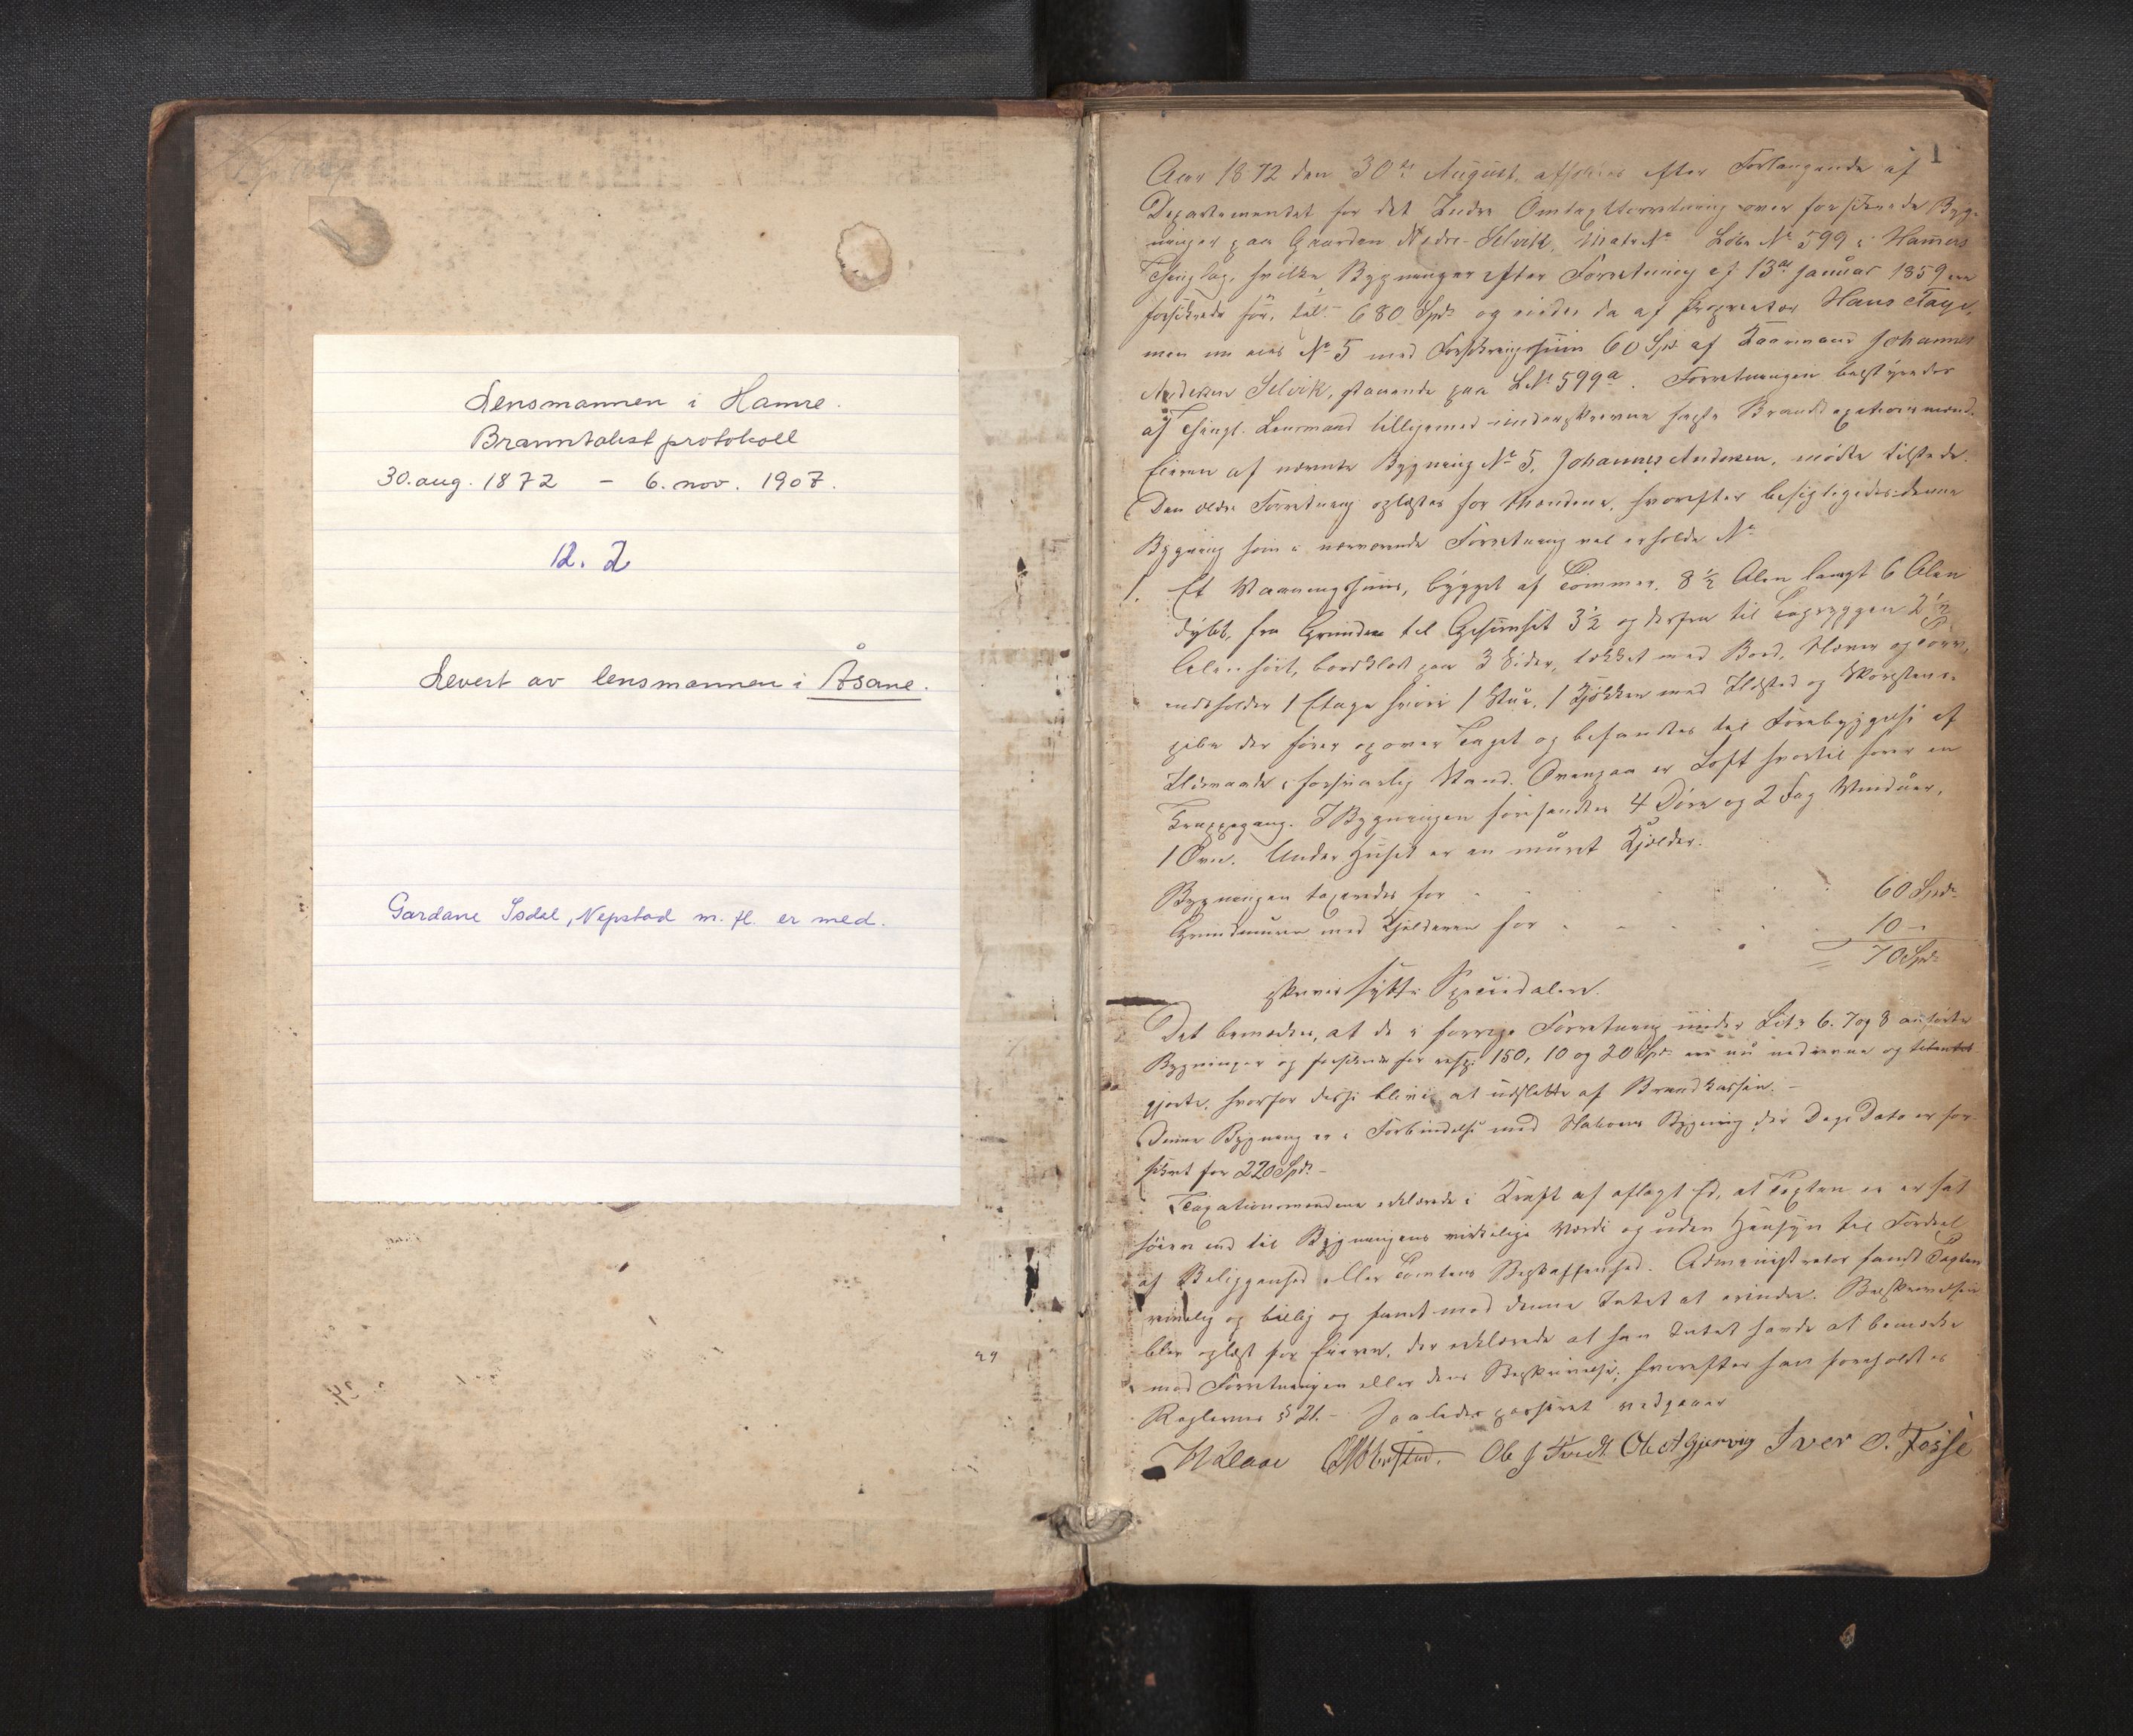 Lensmannen i Hamre.
Branntakst protokoll
30. aug. 1872 – 6. nov. 1907.
12. 2
Levert av lensmannen i Åsane.
Gardane Isdal, Nepstad m. fl. er med.
29
1
Aar 1872 den 30te August, afholdtes efter Forlangende af
Departementet for det Indre Omtaxtforretning over forsikrede Byg-
ninger paa Gaarden Nedre-Selvik, Matr No Løbe No 599 i Hamers
Thinglag, hvilke Bygninger efter Forretning af 13de Januar 1859 ere
forsikrede for, tils. 680 Spd. og eiedes da af Proprietær Hans
men nu eies No 5 med Forsikringssum 60 Spd af Kaarmand Johannes
Andersen Selvik, staaende paa L.No 599a. Forretningen bestyredes
af Thingl. Lensmand tilligemed underskrevne faste Brandtaxationsmænd.
Eieren af nævnte Bygning No 5, Johannes Andersen, mødte tilstede.
Den ældre Forretning oplæstes for Mændene, hvorefter besigtigedes denne
Bygning som i nærværende Forretning vil erholde No
1. Et Vaaningshuus, bygget af Tømmer, 8 1/2 Alen langt 6 Alen
dybt, fra Grunden til Gesimset 3 1/2 og derfra til Tagryggen 2 1/2
Alen høit, bordklædt paa 3 Sider, tækket med Bord, Næver og Torv,
indeholder 1 Etage hvori 1 Stue, 1 Kjøkken med Ildsted og Skorsteens-
pibe der fører op over Taget og befandtes til Forebyggelse af
Ildsvaade i forsvarlig Stand. Ovenpaa er Loft hvortil fører en
Trappegang. I Bygningen forefandtes 4 Døre og 2 Fag Vinduer,
1 Ovn. Under Huset er en muret Kjelder.
Bygningen taxeredes for 60 Spd.
Grundmuren med Kjelderen for 10 –
70 Spd.
skriver sytti Speciedaler.
Det bemærkes, at de i forrige Forretning under Litr 6. 7 og 8 anførte
Bygninger og forsikrede for resp. 150, 10 og 20 Spd. ere nu nedrevne og
gjorte, hvorfor disse blive at udslette af Brandkassen. –
Denne Bygning er i Forbindelse med Naboens Bygning der Dags Dato er for-
sikret for 220 Spd. –
Taxationsmændene erklærede i Kraft af aflagt Ed, at Taxten ei er sat
høiere end til Bygningens virkelige Værdi og uden Hensyn til Fordeel
af Beliggenhed eller Tomtens Beskaffenhed. Administrator fandt Taxten
rimelig og billig og fandt mod denne Intet at erindre. Beskrivelsen
blev oplæst for Eieren, der erklærede at han Intet havde at bemærke
mod Forretningen eller dens Beskrivelse, hvorefter han foreholdtes
Reglernes § 21. – Saaledes passeret vedgaaer
Ole J Tvedt Ole A Gjervig Iver O. Fosse